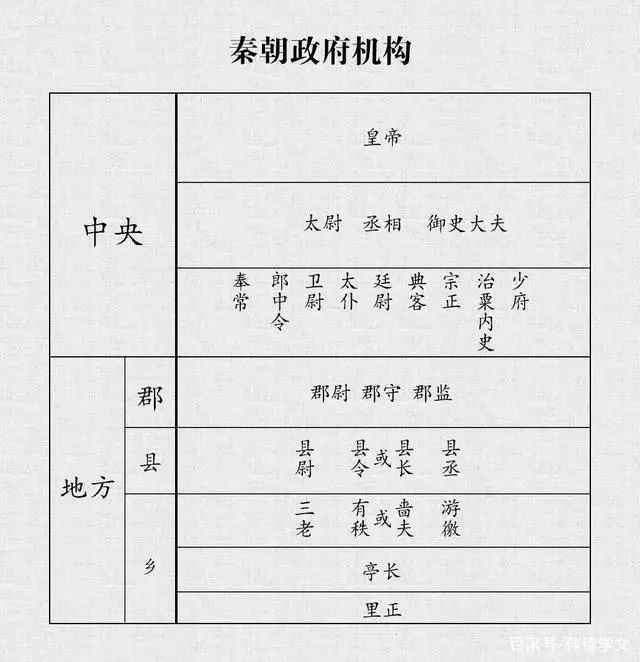 秦朝政府机构
中央
皇帝
太尉 丞相 御史大夫
奉常 郎中令 卫尉 太仆 廷尉 典客 宗正 治粟内史 少府
地方
郡
郡尉 郡守 郡监
县
县尉 县令或县长 县丞
乡
三老 有秩或啬夫 游徼
亭长
里正
百家号/伴读学文